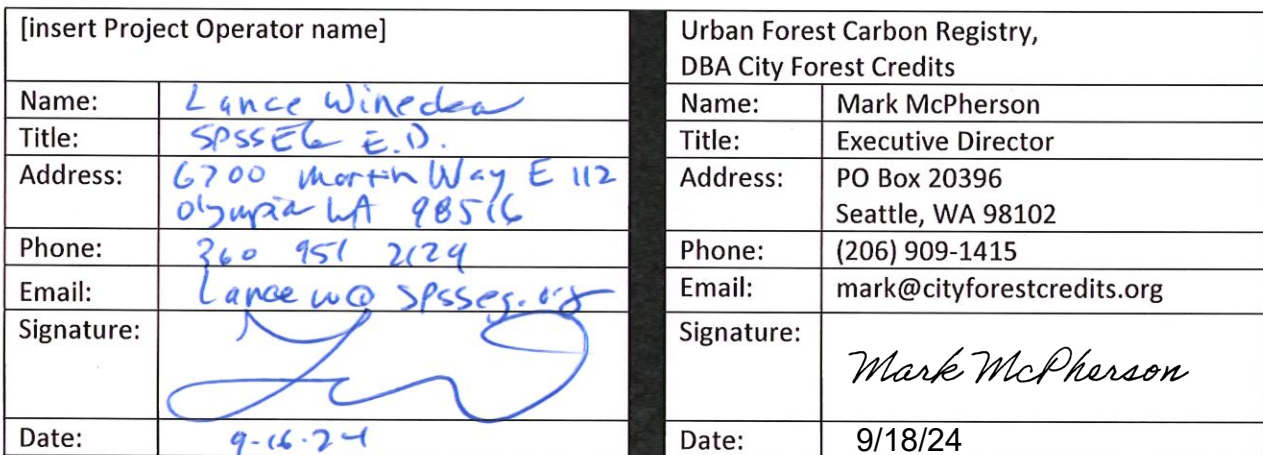 [insert Project Operator name]
Name: Lance Winecka
Title: SPSSEG E.D.
Address: 6700 Martin Way E 112
Olympia WA 98516
Phone: 360 951 2124
Email: Lance w@ spsseg.org
Signature:
Date: 9-16-24
Urban Forest Carbon Registry,
DBA City Forest Credits
Name: Mark McPherson
Title: Executive Director
Address: PO Box 20396
Seattle, WA 98102
Phone: (206) 909-1415
Email: mark@cityforestcredits.org
Signature: Mark McPherson
Date: 9/18/24